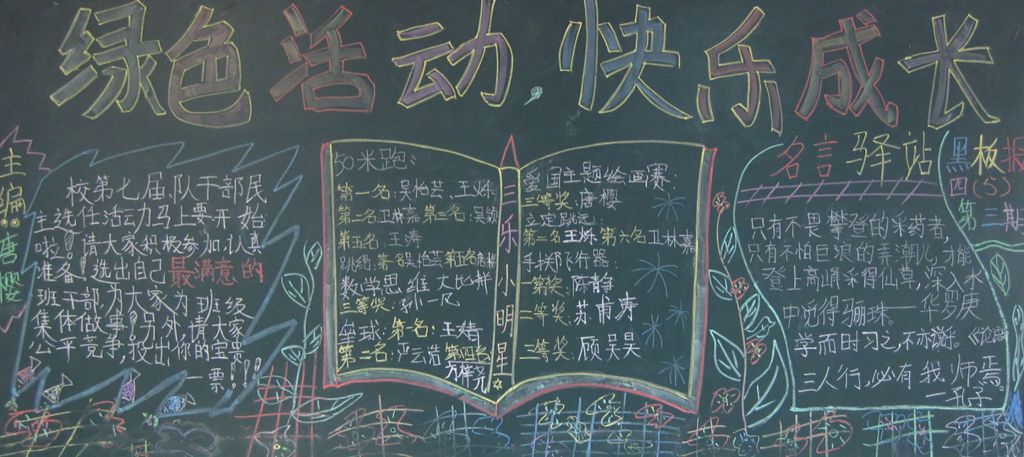 绿色活动 快乐成长
主编:唐樱
校第七届队干部民
主选任活动马上要开始
啦!请大家积极参加,认真
准备,选出自己最满意的
班干部为大家为班级
集体做事!另外,请大家
公平竞争,投出你的宝贵
一票!!!
三乐小明星
50米跑:
第一名:吴怡芸、王烁
第二名卫林嘉 第三名:吴
第五名 王涛
跳绳:第一名吴怡芸 第五名
数学思维大比拼
二等奖:
垒球:第一名:王涛
第二名:严云浩 第四名
主题绘画赛:
三等奖:唐樱
立定跳远:
第二名 王烁 第六名卫林嘉
手抄
一等奖:陈静
二等奖:苏甫涛
三等奖:顾吴昊
名言驿站
只有不畏攀登的采药者,
只有不怕巨浪的弄潮儿,才能
登上高峰采得仙草,深入水
中觅得骊珠。—华罗庚
学而时习之,不亦说乎。《论语》
三人行,必有我师焉
—孔子
黑板报
四(5)
第三期